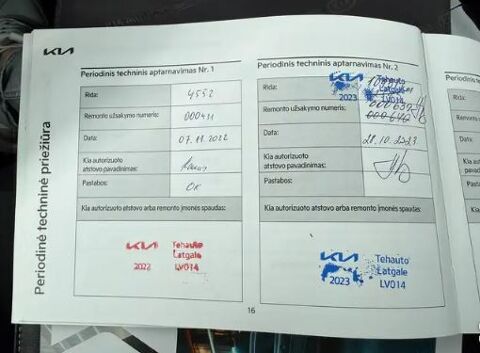 KIA
Periodinė techninė priežiūra
Periodinis techninis aptarnavimas Nr. 1
Rida: 4552
Remonto užsakymo numeris: 000411
Data: 07.11.2022
Kia autorizuoto
atstovo pavadinimas:
Pastabos: OK
Kia autorizuoto atstovo arba remonto įmonės spaudas:
KIA Tehauto
Latgale
2022 LV014
Periodinis techninis aptarnavimas Nr. 2
Rida:
KIA Tehauto
Latgale
2023 LV014
Remonto užsakymo numeris:
Data: 28.10.2023
Kia autorizuoto
atstovo pavadinimas:
Pastabos:
Kia autorizuoto atstovo arba remonto įmonės spaudas:
KIA Tehauto
Latgale
2023 LV014
16